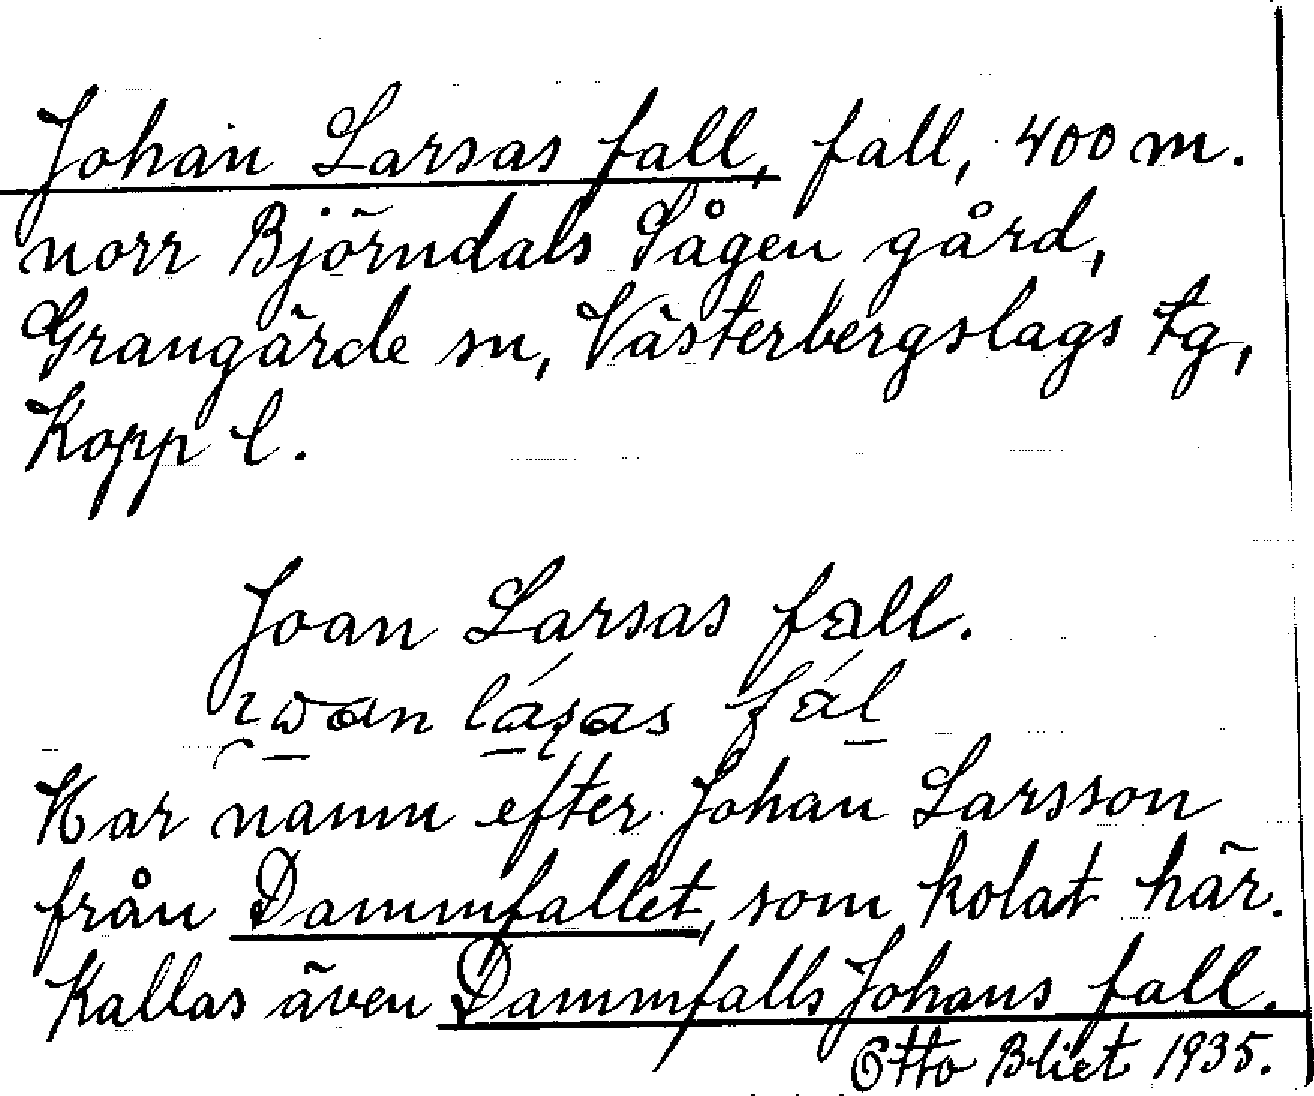 Johan Larsas fall, fall, 400 m.
norr Björndals Sågen gård,
Grangärde sn, Västerbergslags tg,
Kopp l.
Joan Larsas fall.
Har namn efter Johan Larsson
från Dammfallet, som kolat här.
Kallas även Dammfalls Johans fall.
Otto Bliet 1935.